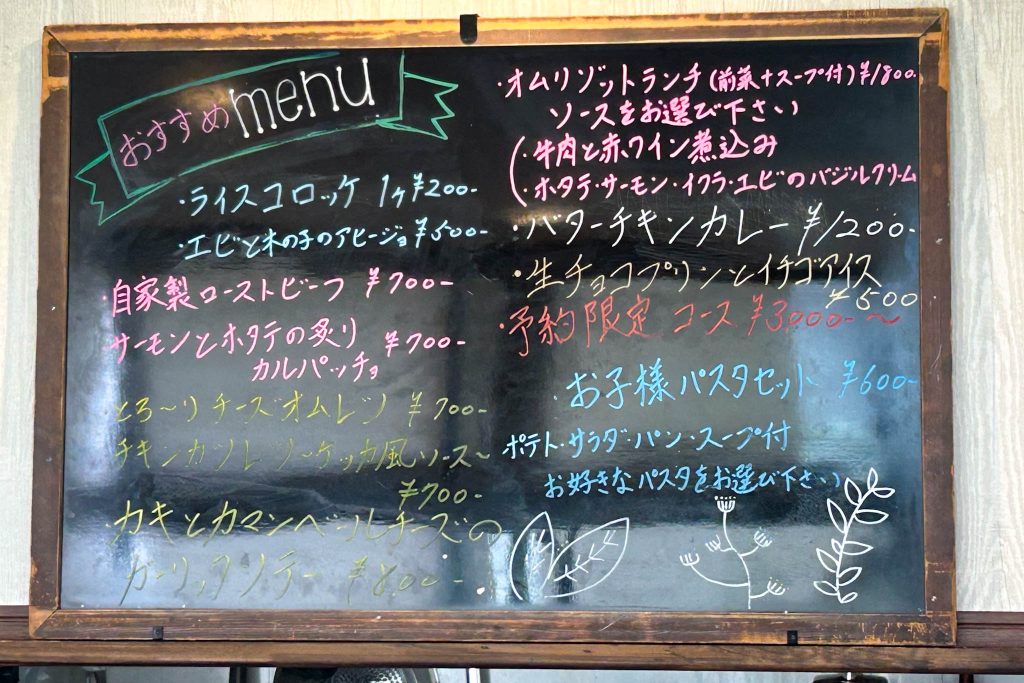 おすすめ menu
・ライスコロッケ 1ヶ ¥200-
・エビと木の子のアヒージョ ¥500-
・自家製ローストビーフ ¥700-
・サーモンとホタテの炙り ¥700-
カルパッチョ
とろ〜りチーズオムレツ ¥700-
チキンカツレツ〜ケッカ風ソース〜
¥700-
・カキとカマンベールチーズの
ガーリックソテー ¥800-
・オムリゾットランチ(前菜+スープ付) ¥1800-
ソースをお選び下さい
(・牛肉と赤ワイン煮込み
(・ホタテ・サーモン・イクラ・エビのバジルクリーム
・バターチキンカレー ¥1200-
・生チョコプリンとイチゴアイス
¥500
・予約限定 コース ¥3000-〜
・お子様パスタセット ¥600-
ポテト・サラダ・パン・スープ付
お好きなパスタをお選び下さい